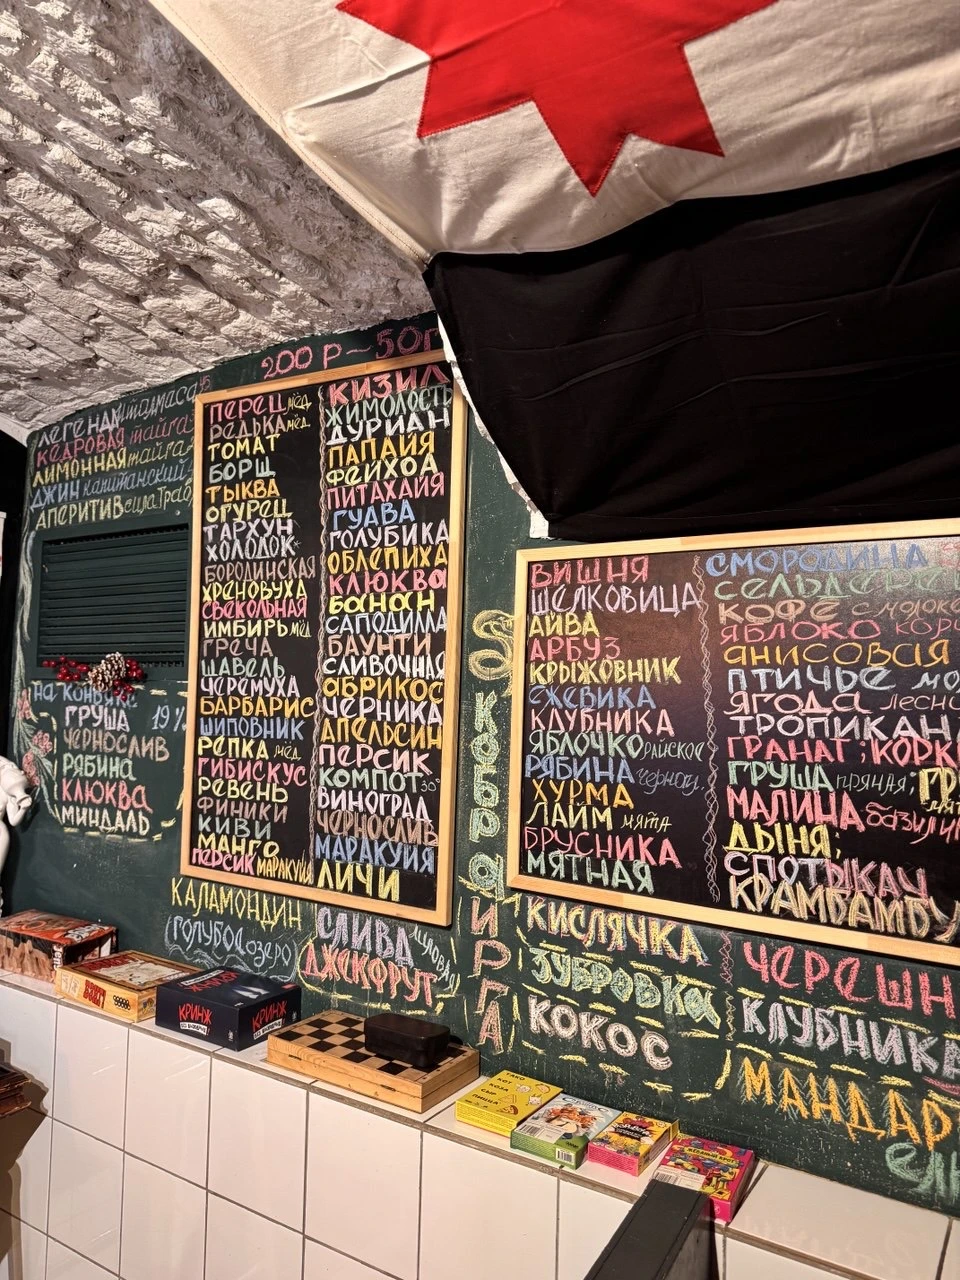 200 Р – 50Г
ЛЕГЕНДА
КЕДРОВАЯ тайга
ЛИМОННАЯ тайга
ДЖИН капитанский
АПЕРИТИВ сила трав
на КОНЬЯКЕ
ГРУША 19%
ЧЕРНОСЛИВ
РЯБИНА
КЛЮКВА
МИНДАЛЬ
ПЕРЕЦ мёд
РЕДЬКА мёд
ТОМАТ
БОРЩ
ТЫКВА
ОГУРЕЦ
ТАРХУН
ХОЛОДОК
БОРОДИНСКАЯ
ХРЕНОВУХА
СВЕКОЛЬНАЯ
ИМБИРЬ мёд
ГРЕЧА
ЩАВЕЛЬ
ЧЕРЕМУХА
БАРБАРИС
ШИПОВНИК
РЕПКА мёд
ГИБИСКУС
РЕВЕНЬ
ФИНИКИ
КИВИ
МАНГО
ПЕРСИК МАРАКУЙЯ
КИЗИЛ
ЖИМОЛОСТЬ
ДУРИАН
ПАПАЙЯ
ФЕЙХОА
ПИТАХАЙЯ
ГУАВА
ГОЛУБИКА
ОБЛЕПИХА
КЛЮКВА
БАНАН
САПОДИЛЛА
БАУНТИ
СЛИВОЧНАЯ
АБРИКОС
ЧЕРНИКА
АПЕЛЬСИН
ПЕРСИК
КОМПОТ 30°
ВИНОГРАД
ЧЕРНОСЛИВ
МАРАКУЙЯ
ЛИЧИ
КАЛАМОНДИН
ГОЛУБОЕ озеро
СЛИВА
ДЖЕКФРУТ
СКОБРА И РГА
ВИШНЯ
ШЕЛКОВИЦА
АЙВА
АРБУЗ
КРЫЖОВНИК
ЕЖЕВИКА
КЛУБНИКА
ЯБЛОЧКО райское
РЯБИНА черноп.
ХУРМА
ЛАЙМ мята
БРУСНИКА
МЯТНАЯ
СМОРОДИНА
СЕЛЬДЕРЕ
КОФЕ с молоко
ЯБЛОКО кор
АНИСОВАЯ
ПТИЧЬЕ мо
ЯГОДА лесн
ТРОПИКАН
ГРАНАТ; КОРК
ГРУША пряная; ГР
МАЛИНА базили
ДЫНЯ;
СПОТЫКАЧ
КРАМБАМБУ
КИСЛЯЧКА
ЗУБРОВКА
КОКОС
ЧЕРЕШН
КЛУБНИК
МАНДАР
КРИНЖ
КРИНЖ
БЕЗ ВАЛЮЧА
ТАКО
КОТ
КОЗА
СЫР
ПИЦЦА